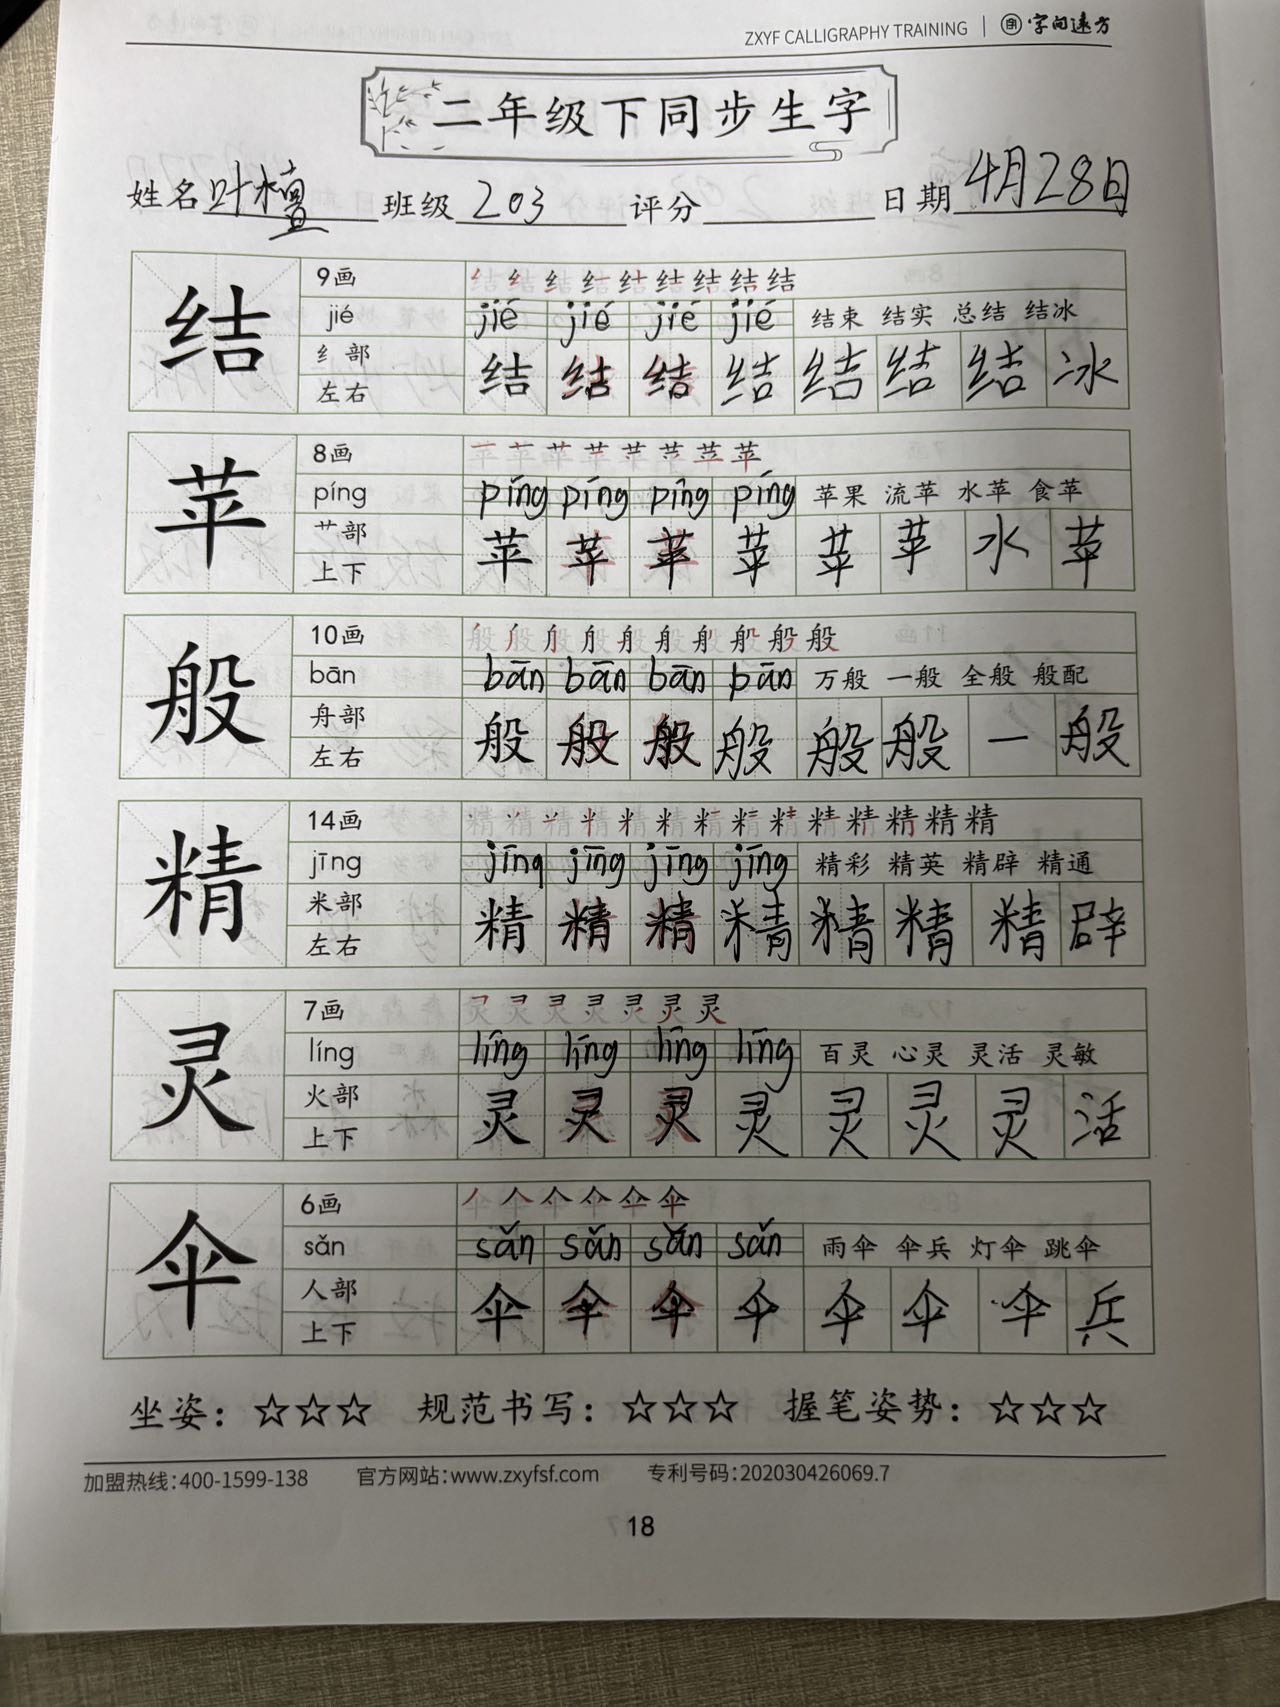 ZXYF CALLIGRAPHY TRAINING | 字向远方
二年级下同步生字
姓名 叶檀 班级 203 评分 日期 4月28日
结 9画
jié jié jié jié jié 结束 结实 总结 结冰
纟部 结 结 结 结 结 结 结 冰
左右
苹 8画
píng píng píng píng píng 苹果 流苹 水苹 食苹
艹部 苹 苹 苹 苹 苹 苹 水 苹
上下
般 10画
bān bān bān bān pān 万般 一般 全般 般配
舟部 般 般 般 般 般 般 一 般
左右
精 14画
jīng jīng jīng jīng jīng 精彩 精英 精辟 精通
米部 精 精 精 精 精 精 精 辟
左右
灵 7画
líng līng līng līng līng 百灵 心灵 灵活 灵敏
火部 灵 灵 灵 灵 灵 灵 灵 活
上下
伞 6画
sǎn sǎn sǎn sǎn sǎn 雨伞 伞兵 灯伞 跳伞
人部 伞 伞 伞 伞 伞 伞 伞 兵
上下
坐姿：☆☆☆ 规范书写：☆☆☆ 握笔姿势：☆☆☆
加盟热线：400-1599-138 官方网站：www.zxyfsf.com 专利号码：202030426069.7
18